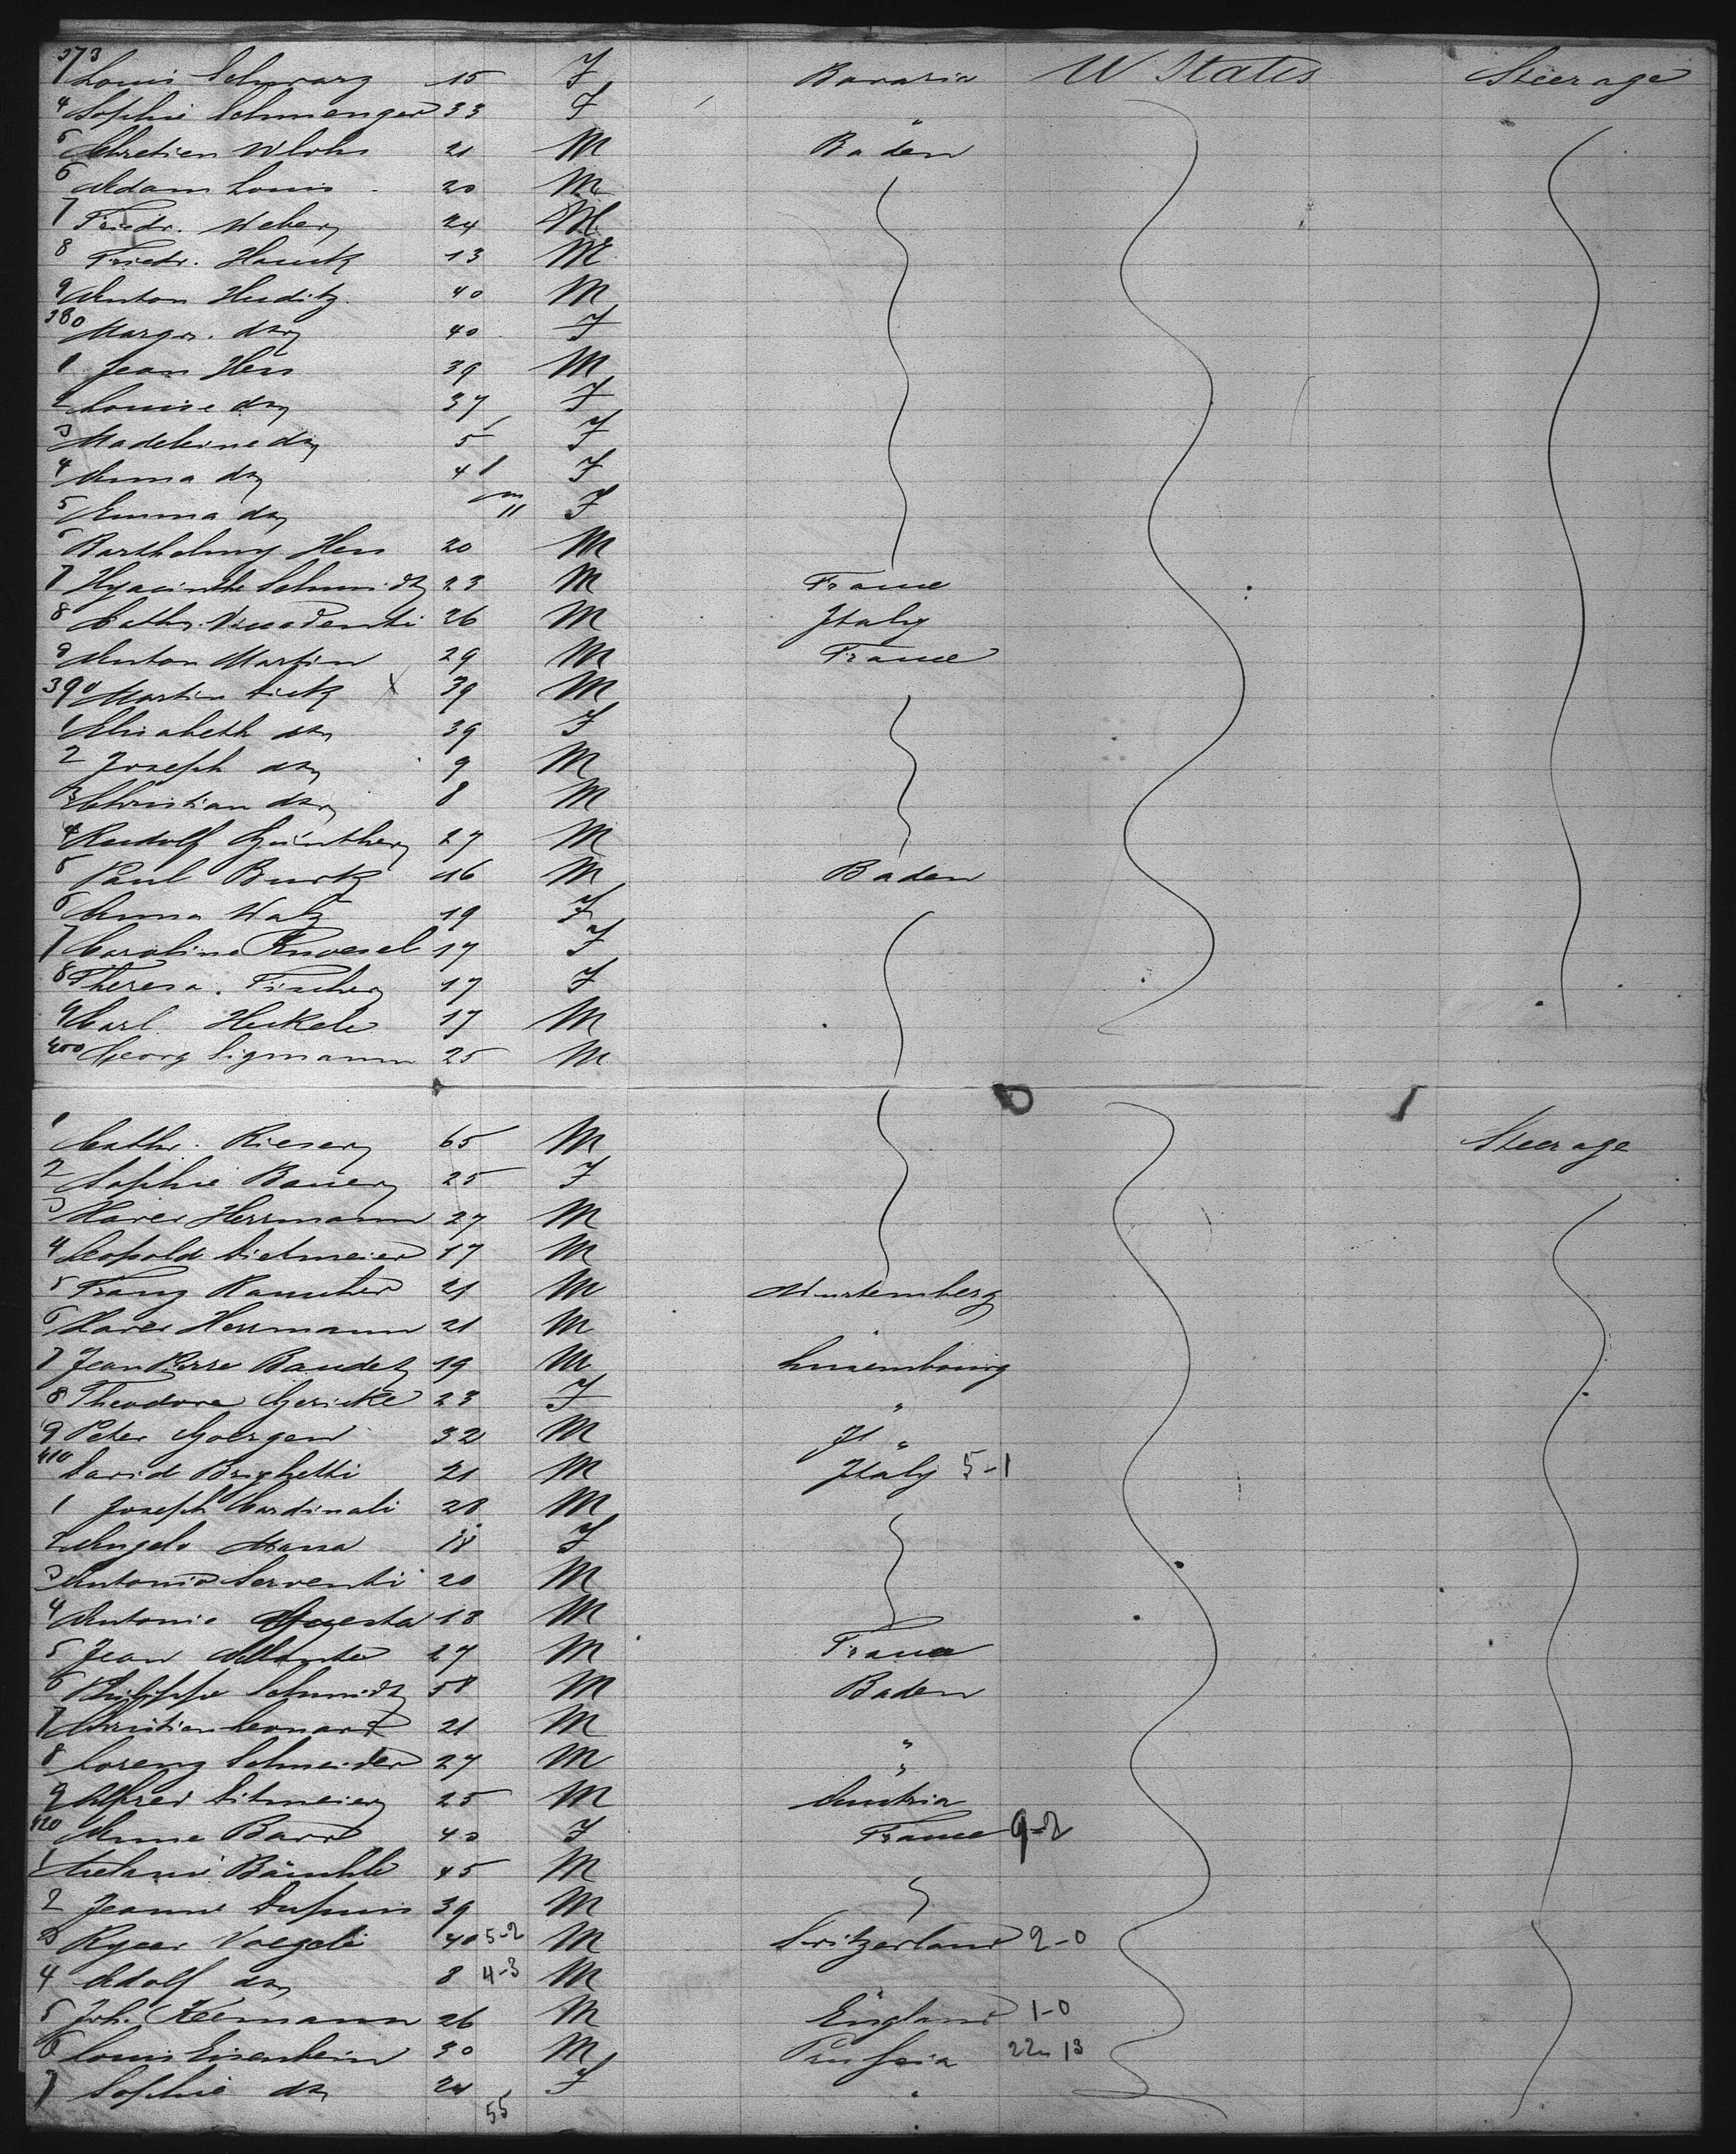 373 Louis Schwarz 15 F Bavaria U States Steerage
4 Sophie Schmenger 33 F "
5 Chretien 21 M Baden
6 Adam Louis 20 M
7 Friedr. Weber 24 M
8 Friedr. Hauck 13 M
9 Anton Huditz 40 M
380 Margr. do 40 F
1 Jean Hess 39 M
2 Louise do 37 F
3 Madeleine do 5 F
4 Anna do 4 F
5 Emma do m 11 F
6 Barthelmy Hess 20 M
7 Hyacinthe Schmidt 23 M France
8 Cathr. 26 M Italy
9 Anton Martin 29 M France
390 Martin Dick X 39 M
1 Elisabeth do 39 F
2 Joseph do 9 M
3 Christian do 8 M
4 Rudolf Günther 27 M
5 Paul Burk 16 M Baden
6 Anna Walz 19 F
7 Carolina 17 F
8 Theresa. Fischer 17 F
9 Carl Heckele 17 M
400 Georg Sigmann 25 M
1 Cathr. Rieser 65 M Steerage
2 Sophie Bauer 25 F
3 Xaver Herrmann 27 M
4 Leopold Dietmeier 17 M
5 Franz 21 M Wurtemberg
6 Xaver Herrmann 21 M "
7 Jean Pierre Baudet 19 M Luxembourg
8 Theodora Gericke 23 F "
9 Peter Goergen 32 M It "
410 David Brighetti 21 M Italy 5-1
1 Joseph Cardinali 28 M
2 Angelo Massa 18 F
3 Antonio Serventi 20 M
4 Antonio 18 M
5 Jean 27 M France
6 Philippe Schmidt 58 M Baden
7 Christian Leonard 21 M "
8 Lorenz Schneider 27 M "
9 Alfred Ditmeier 25 M Austria
420 Anne Barr 40 F France 9-2
1 Melanie Bämhle 45 M
2 Jeanne Dupuis 39 M
3 Voegeli 40 5-2 M Switzerland 2-0
4 Adolf do 8 4-3 M "
5 Joh. Kermann 26 M England 1-0
6 Louis Eisenhein 30 M Prussia 22 13
7 Sophie do 24 F "
55